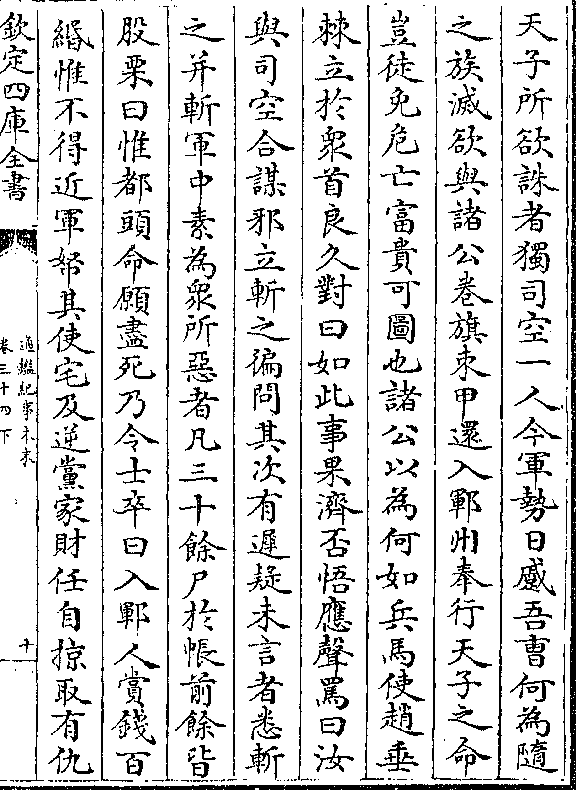 天子所欲誅者獨司空一人今軍勢日蹙吾曹何為隨
之族滅欲與諸公卷旗束甲還入鄆州奉行天子之命
豈徒免危亡富貴可圖也諸公以為何如兵馬使趙垂
棘立於衆首良久對曰如此事果濟否悟應聲罵曰汝
與司空合謀邪立斬之徧問其次有遲疑未言者悉斬
之并斬軍中素為衆所惡者凡三十餘尸於帳前餘皆
股栗曰惟都頭命願盡死乃令士卒曰入鄆人賞錢百
緡惟不得近軍帑其使宅及逆黨家財任自掠取有仇
欽定四庫全書
通鑑紀事本末
卷三十四下
十